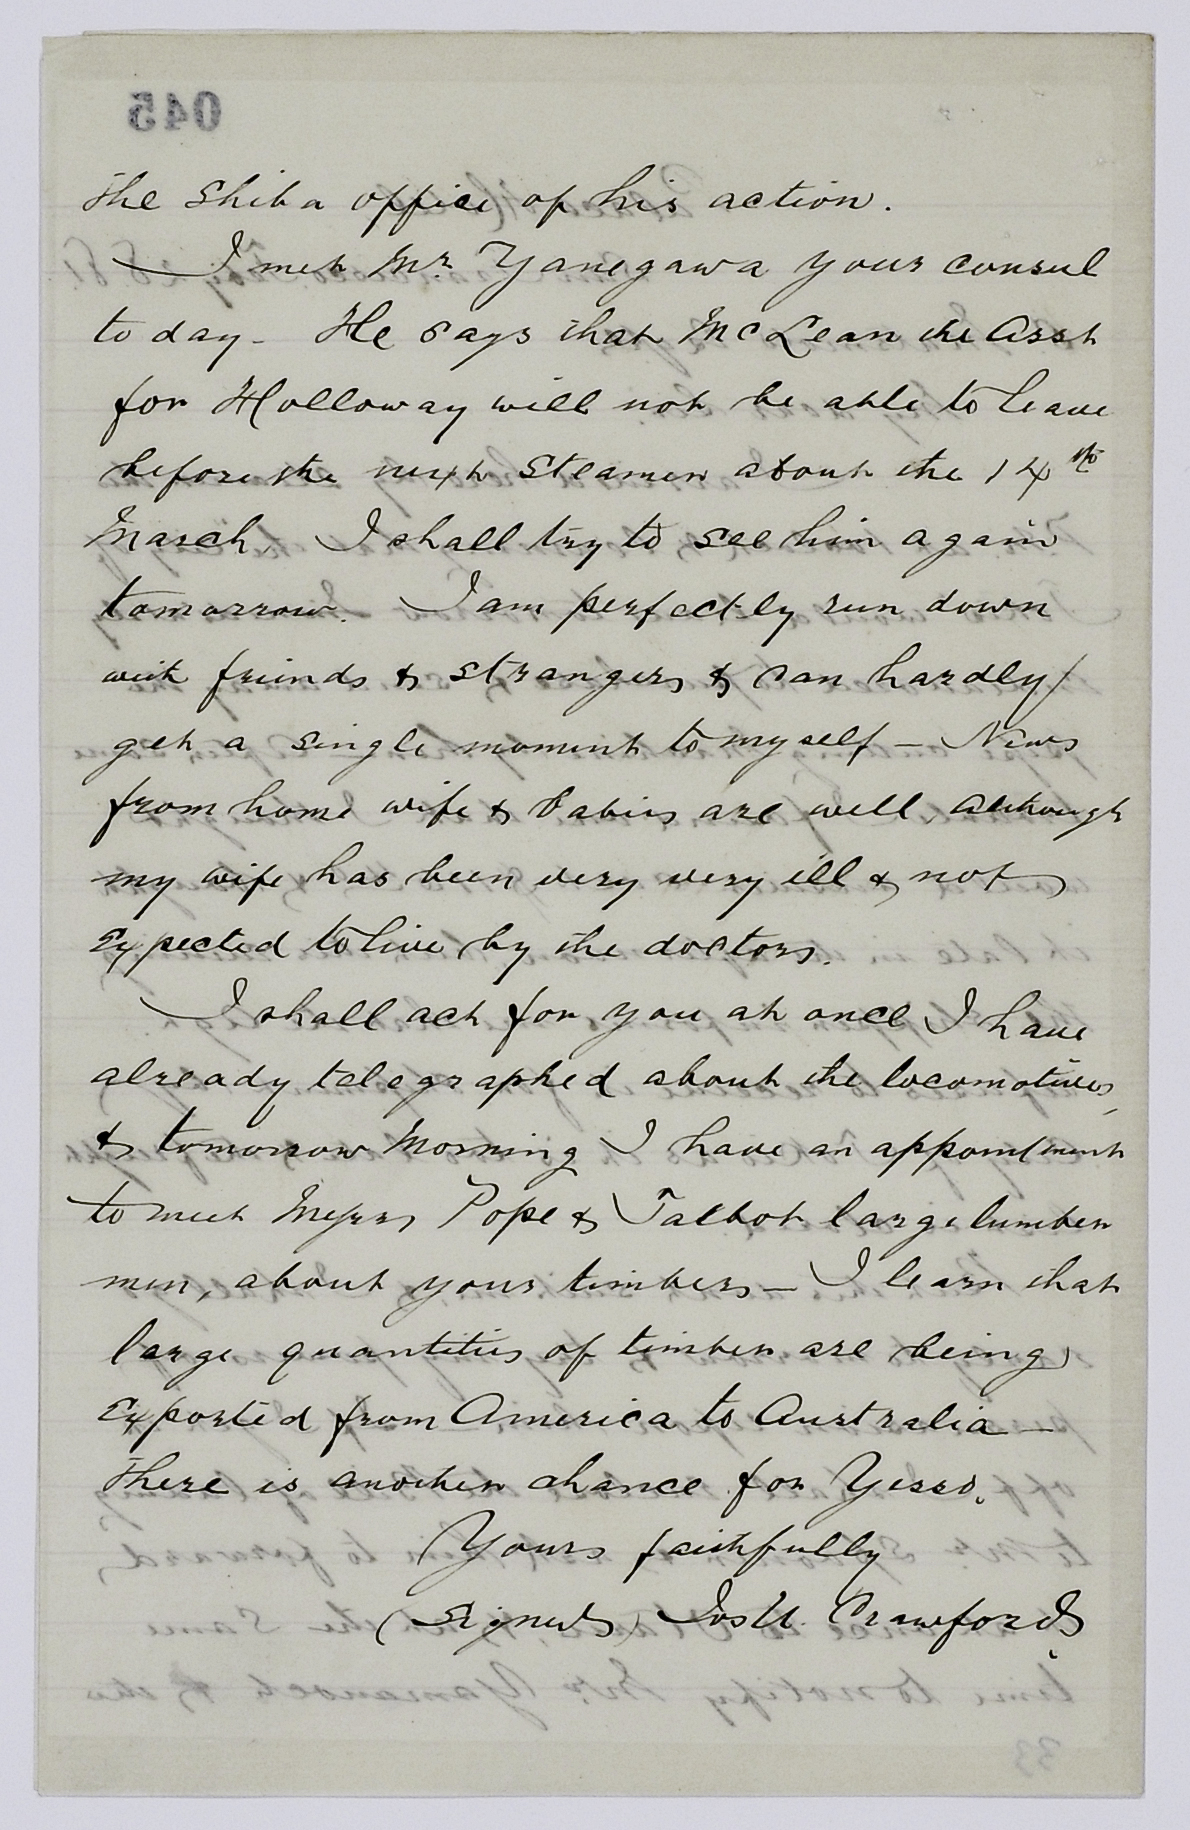 the Shiba office of his action.
I met Mr. Yanegawa your consul
to day - He says that McLean the Asst
for Holloway will not be able to leave
before the next steamer about the 14th
March. I shall try to see him again
tomorrow. I am perfectly run down
with friends & strangers & can hardly
get a single moment to myself — News
from home wife & babies are well, although
my wife has been very very ill & not
Expected to live by the doctors.
I shall act for you at once I have
already telegraphed about the locomotives,
& tomorrow Morning I have an appointment
to meet Messrs Pope & Talbot large lumber
men, about your timbers — I learn that
large quantities of timber are being
Exported from America to Australia —
There is another chance for Yesso.
Yours faithfully
(Signed) Jos U. Crawford
045